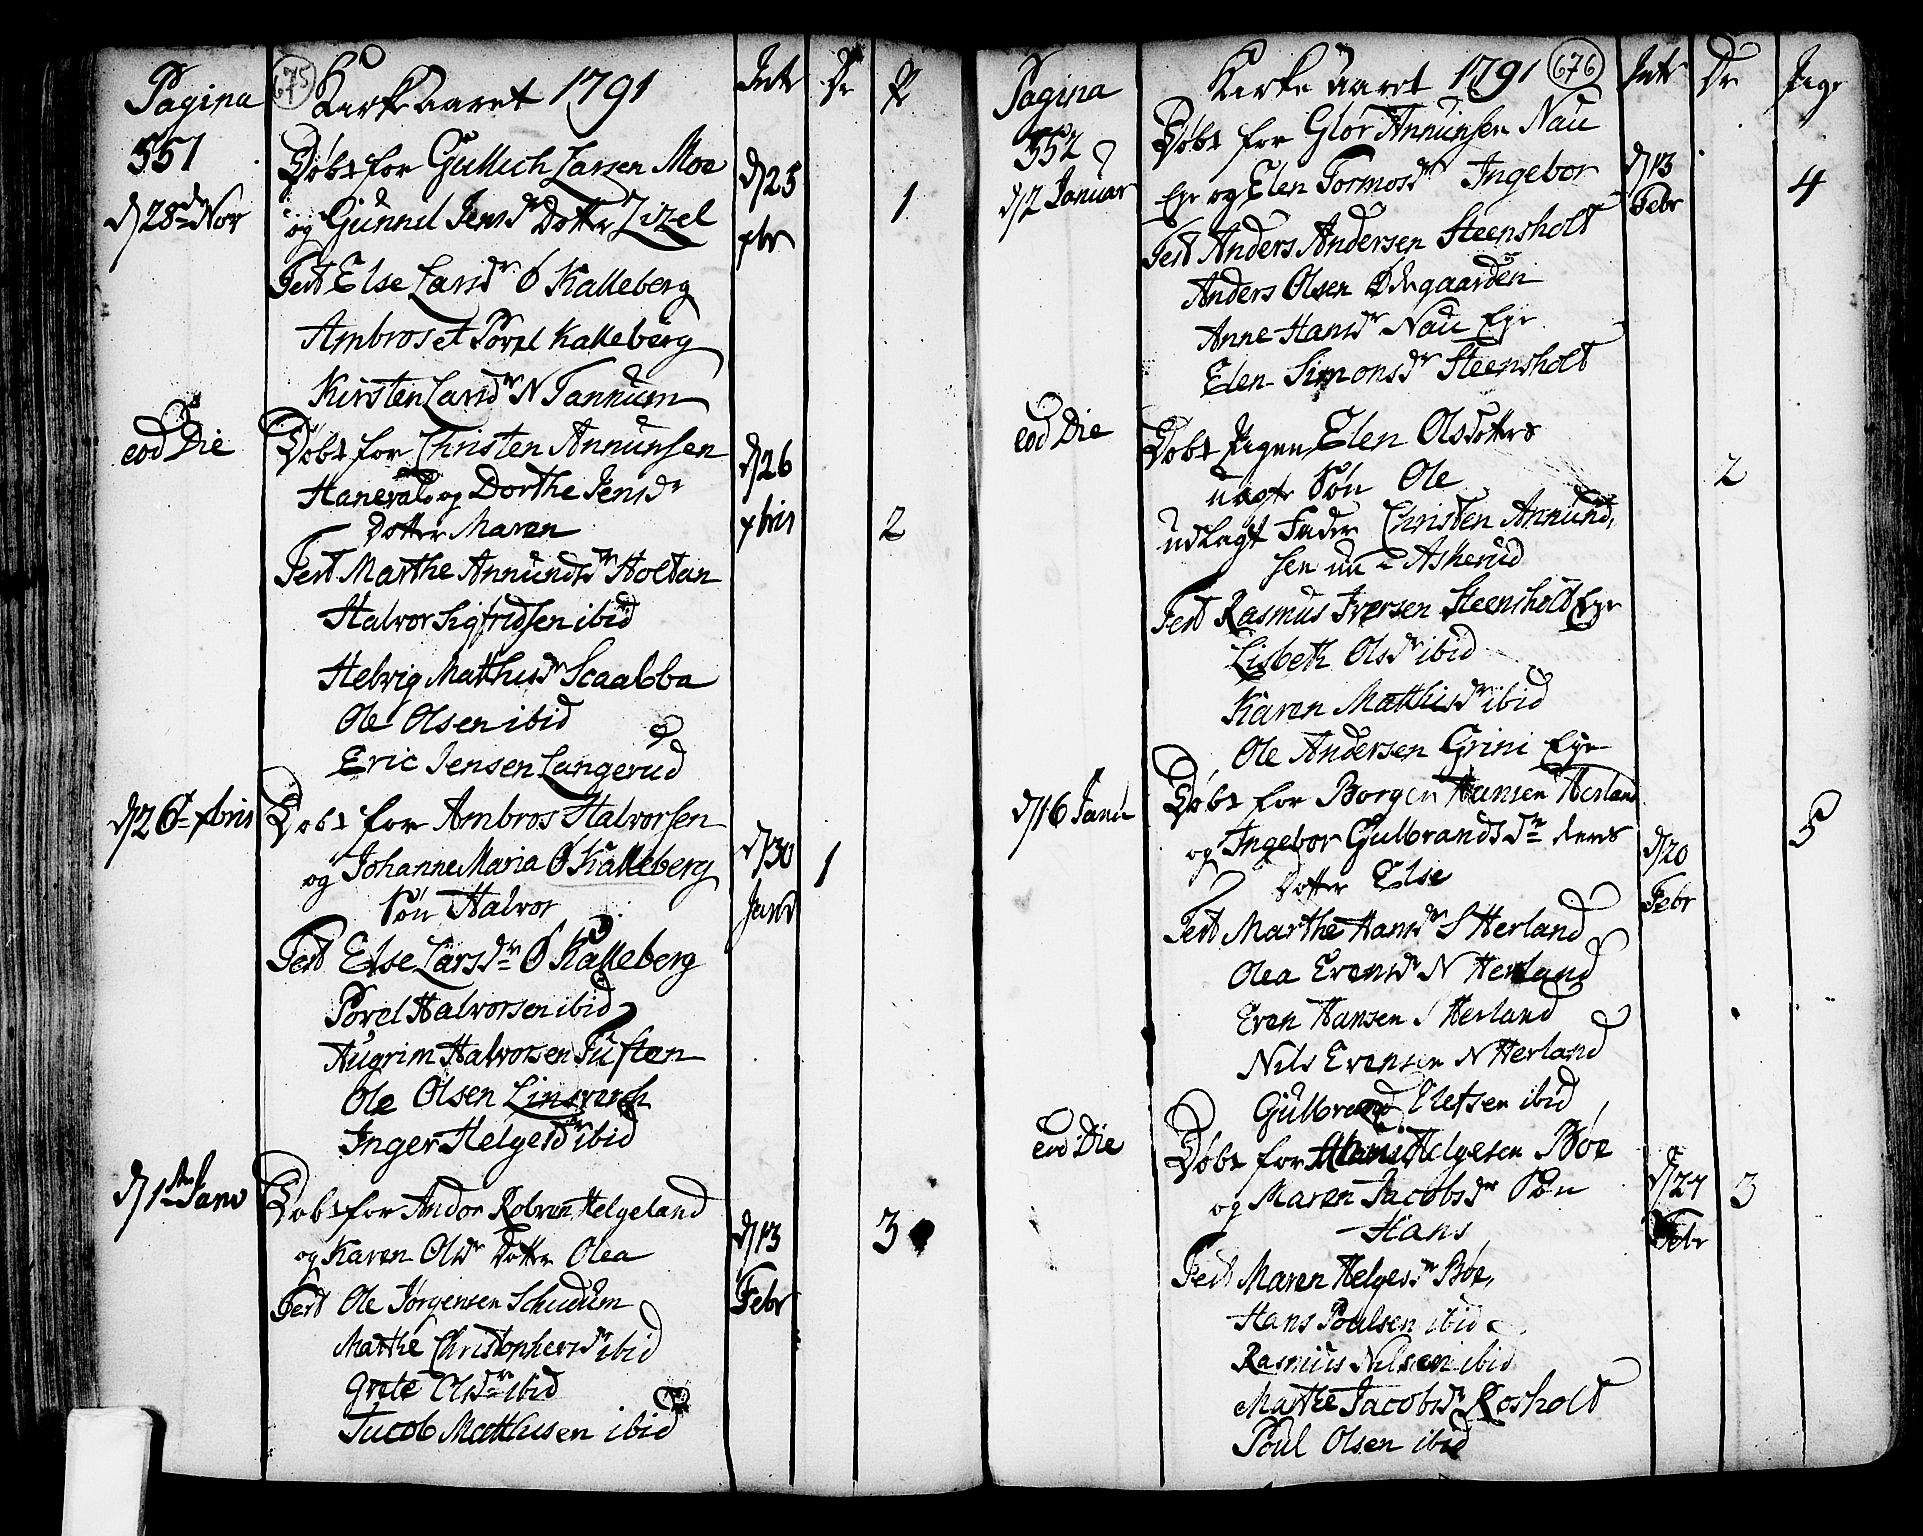 Pagina 675 Kirke Aaret 1791 Intr Dr P
551
d 28de Nov
Døbt for Gullich Larsen Moe
og Gunnil Jensdr Dotter Zizel
d 25 xbr 1
Test Else Larsdr Ø Kalleberg
Ambros et Povel Kalleberg
Kirsten Larsdr N Tannum
eod Die
Døbt for Christen Annunsen
Haneval og Dorthe Jensdr
Dotter Maren
d 26 xbris 2
Test Marthe Annundsdr Holtan
Halvor Sigfridsen ibid
Helvig Matthisdr Scaalba
Ole Olsen ibid
Eric Jensen Langerud
d 26t xbris
Døbt for Ambros Halvorsen
og Johanne Maria Ø Kalleberg
Søn Halvor
d 30 Janv 1
Test Else Larsdr Ø Kalleberg
Povel Halvorsen ibid
Augrim Halvorsen Tuften
Ole Olsen Linsverch
Inger Helgesdr ibid
d 1ste Janv
Døbt for Andor Helgeland
og Karen Olsdr Dotter Olea
d 13 Febr 3
Test Ole Jørgensen Schudum
Mathe Christophersdr ibid
Grete Olsdr ibid
Jacob Matthisen ibid
Pagina Kirke Aaret 1791 676 Intr Dr Pige
552
d 2 Januar
Døbt for Glor Annunsen Nau
Eje og Elen Tormosdr Ingebor
d 13 Febr 4
Test Anders Andersen Steensholt
Anders Olsen Ødegaarden
Anne Hansdr Nau Eje
Elen Simonsdr Steensholt
eod Die
Døbt Pigen Elen Olsdotters
uægte Søn Ole
2
udlagt Fader Christen Annund,
sen Askerud
Test Rasmus Iversen Steensholt Eje
Lisbeth Olsdr ibid
Karen Matthisdr ibid
Ole Andersen Grini Eje
d 16 Janu
Døbt for Borger Hansen Herland
og Ingebor Gulbrandsdr deres
Dotter Else
d 20 Febr 5
Test Marthe Hansdr S Herland
Olea Evensdr N Herland
Even Hansen S Herland
Nils Evensen N Herland
Gulbrand Elefsen ibid
eod Die
Døbt for Hans Helgesen Bøe
og Maren Jacobsdr Søn
Hans
d 27 Febr 3
Test Maren Helgesdr Bøe,
Hans Poulsen ibid
Rasmus Nilsen ibid
Mathe Jacobsdr Kosholt
Poul Olsen ibid